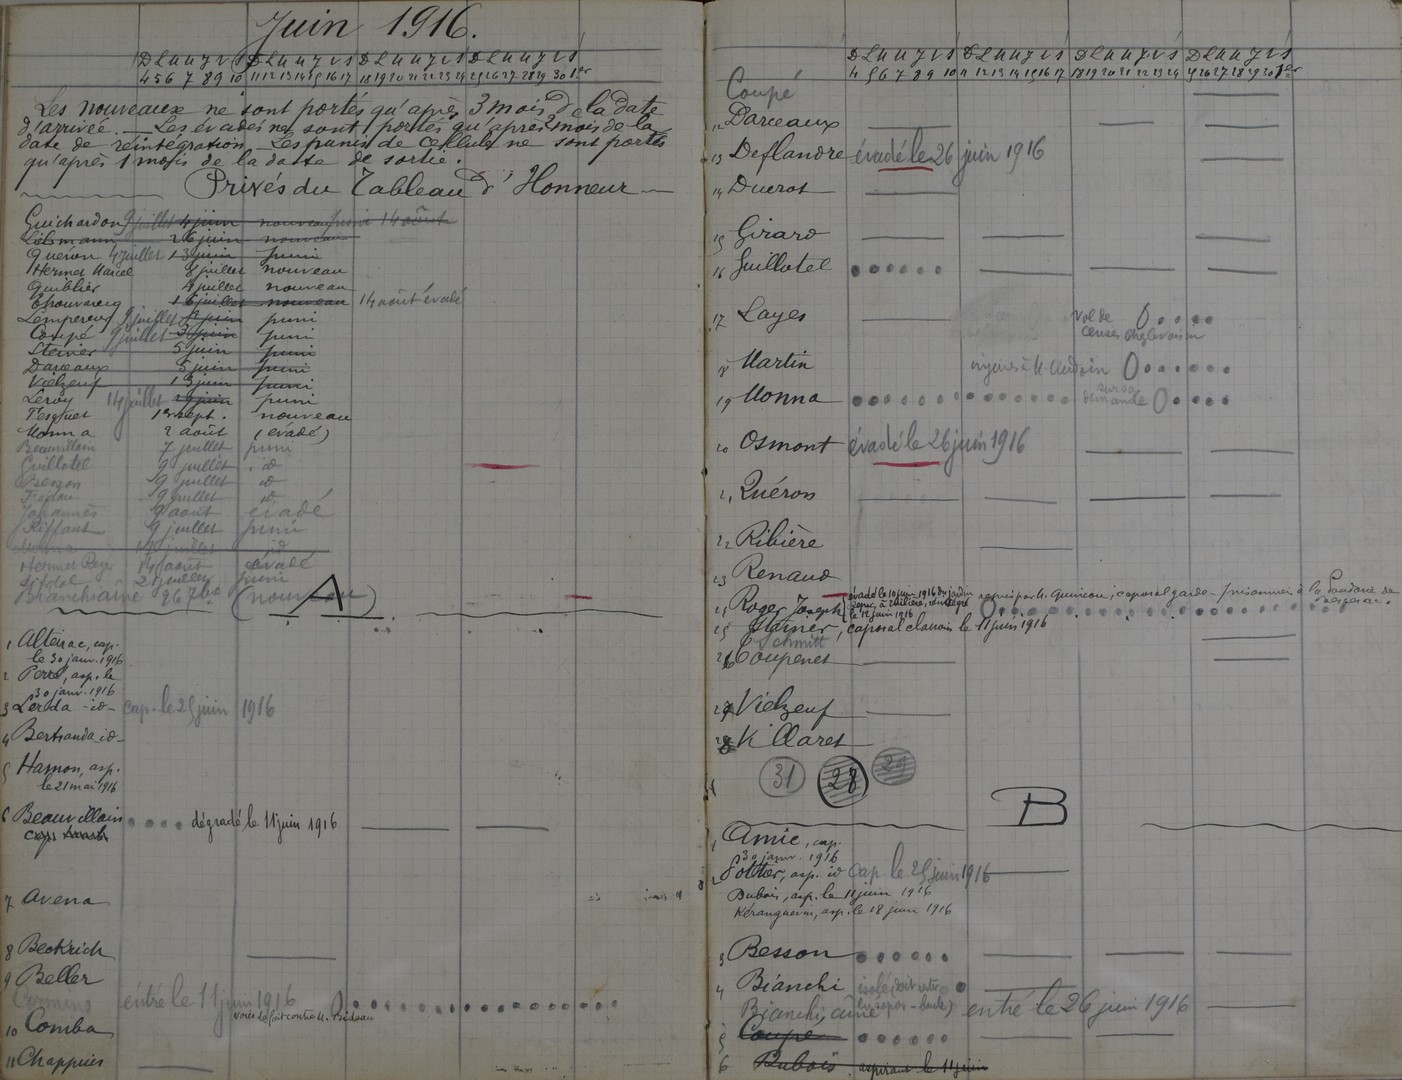 Juin 1916.
D L M M J V S D L M M J V S D L M M J V S D L M M J V S
4 5 6 7 8 9 10 11 12 13 14 15 16 17 18 19 20 21 22 23 24 25 26 27 28 29 30 1er
Les nouveaux ne sont portés qu'après 3 mois de la date
d'arrivée. — Les évadés ne sont portés qu'après 2 mois de la
date de réintégration — Les punis de cellule ne sont portés
qu'après 1 mois de la date de sortie.
Privés du Tableau d'Honneur
Guichardon 9 juillet 4 juin nouveau puni 14 août
26 juin nouveau
Quéron 4 juillet 13 juin puni
Hermet Marcel 8 juillet nouveau
Quiblier 4 juillet nouveau
16 juillet nouveau 14 août évadé
Lempereur 9 juillet puni
Coupé 9 juillet puni
Steiner 5 juin puni
Darceaux 5 juin puni
Vielzeuf 13 juin puni
Leroy 14 juillet puni
1er sept. nouveau
Monna 2 août (évadé)
Beauvillain 7 juillet puni
Guillotel 9 juillet id
Besson 9 juillet id
9 juillet id
Johannès 9 août évadé
Riffaut 9 juillet puni
Monna juillet id
Hermet Roger 14 août évadé
juillet puni
26 7bre (nouveau)
A
1 Alteirac, cap.
le 30 janv. 1916
2 asp. le
30 janv. 1916
3 Lerda -id- cap. le 25 juin 1916
4 Bertranda -id-
5 Hamon, asp.
le 21 mai 1916
6 Beauvillain dégradé le 11 juin 1916
7 Avena
8 Beckrich
9 Beller
entré le 11 juin 1916
voies de fait contre M.
10 Comba
11 Chappuis
D L M M J V S D L M M J V S D L M M J V S D L M M J V S
4 5 6 7 8 9 10 11 12 13 14 15 16 17 18 19 20 21 22 23 24 25 26 27 28 29 30 1er
Coupé
12 Darceaux
13 Deflandre évadé le 26 juin 1916
14 Ducrot
15 Girard
16 Guillotel
17 Layes vol de
cerises chez le voisin
18 Martin injures à M.
19 Monna sur sa
demande
20 Osmont évadé le 26 juin 1916
21 Quéron
22 Ribière
23 Renaud
24 Roger Joseph évadé le 10 juin 1916 du jardin
repris par M. caporal garde - prisonnier à la
le 12 juin 1916
25 Steiner, caporal clairon le 11 juin 1916
Schmitt
26 Coupenet
27 Vielzeuf
28 Villaret
31 28 29
B
1 Amic, cap.
30 janv. 1916
2 asp. id cap. le 25 juin 1916
Dubois, asp. le 11 juin 1916
asp. le 18 juin 1916
3 Besson
4 Bianchi isolé
Bianchi, aîné entré le 26 juin 1916
5 Coupé
6 Dubois aspirant le 11 juin